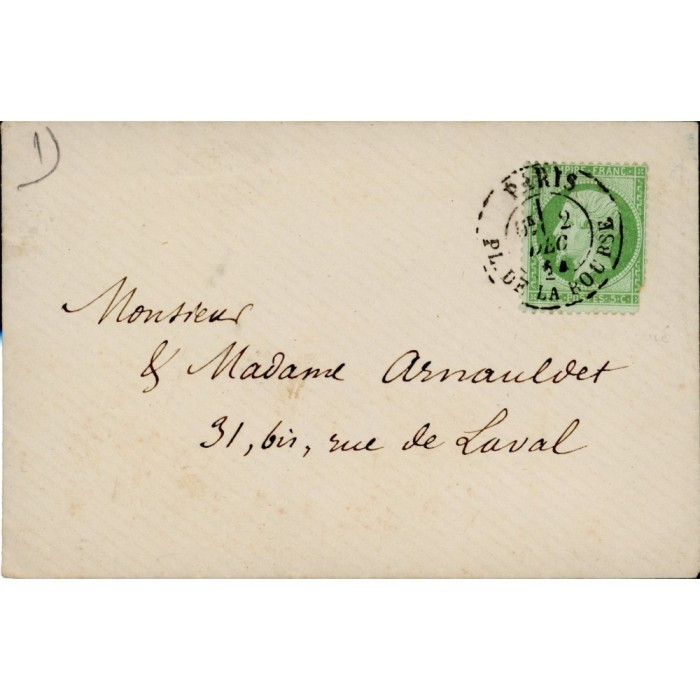 1)
EMPIRE FRANC
PARIS
2
DEC
PL. DE LA BOURSE
5 C
Monsieur
& Madame Arnauldet
31, bis, rue de Laval